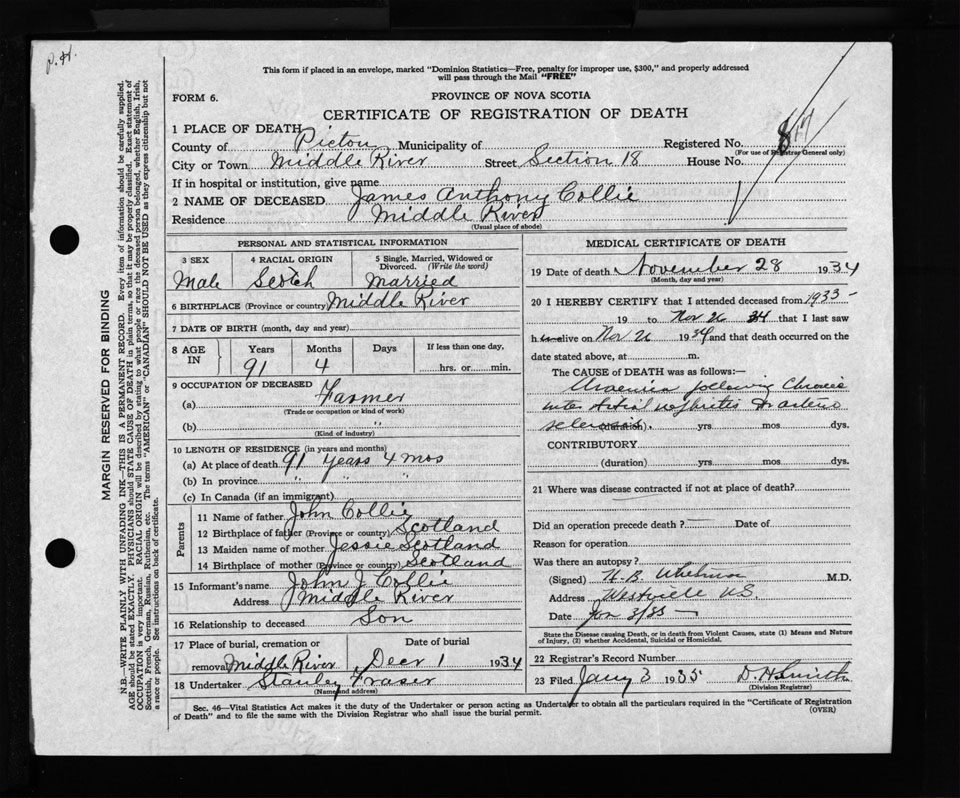 P.H.
This form if placed in an envelope, marked "Dominion Statistics—Free, penalty for improper use, $300," and properly addressed
will pass through the Mail "FREE"
FORM 6.
PROVINCE OF NOVA SCOTIA
CERTIFICATE OF REGISTRATION OF DEATH
1 PLACE OF DEATH
County of Pictou Municipality of Registered No.
(For use of Registrar General only)
City or Town Middle River Street Section 18 House No.
If in hospital or institution, give name
2 NAME OF DECEASED James Anthony Collie
Residence Middle River
(Usual place of abode)
PERSONAL AND STATISTICAL INFORMATION
3 SEX 4 RACIAL ORIGIN 5 Single, Married, Widowed or Divorced. (Write the word)
Male Scotch Married
6 BIRTHPLACE (Province or country) Middle River
7 DATE OF BIRTH (month, day and year)
8 AGE IN Years Months Days If less than one day,
91 4 hrs. or min.
9 OCCUPATION OF DECEASED
(a) Farmer
(Trade or occupation or kind of work)
(b) "
(Kind of industry)
10 LENGTH OF RESIDENCE (in years and months)
(a) At place of death 91 years 4 mos
(b) In province " " "
(c) In Canada (if an immigrant)
Parents
11 Name of father John Collie
12 Birthplace of father (Province or country) Scotland
13 Maiden name of mother Jessie Scotland
14 Birthplace of mother (Province or country) Scotland
15 Informant's name John J Collie
Address Middle River
16 Relationship to deceased Son
17 Place of burial, cremation or Date of burial
removal Middle River, Decr 1 1934
18 Undertaker Stanley Fraser
(Name and address)
MEDICAL CERTIFICATE OF DEATH
19 Date of death November 28 1934
(Month, day and year)
20 I HEREBY CERTIFY that I attended deceased from 1933 -
19 to Nov 26 34 that I last saw
h alive on Nov 26 1934 and that death occurred on the
date stated above, at m.
The CAUSE of DEATH was as follows:—
Uraemia following Chronic
interstitial nephritis arterio
sclerosis (duration) yrs mos dys.
CONTRIBUTORY
(duration) yrs mos dys.
21 Where was disease contracted if not at place of death?
Did an operation precede death? — Date of
Reason for operation
Was there an autopsy?
(Signed) H. B. Whitman M.D.
Address Westville N.S.
Date Jan 3/35 —
State the Disease causing Death, or in death from Violent Causes, state (1) Means and Nature
of Injury, (2) whether Accidental, Suicidal or Homicidal.
22 Registrar's Record Number
23 Filed Jany 3 1935 D. H. Smith
(Division Registrar)
Sec. 46—Vital Statistics Act makes it the duty of the Undertaker or person acting as Undertaker to obtain all the particulars required in the "Certificate of Registration
of Death" and to file the same with the Division Registrar who shall issue the burial permit. (OVER)
MARGIN RESERVED FOR BINDING
N.B.—WRITE PLAINLY WITH UNFADING INK—THIS IS A PERMANENT RECORD. Every item of information should be carefully supplied.
AGE should be stated EXACTLY. PHYSICIANS should STATE CAUSE OF DEATH in plain terms, so that it may be properly classified. Exact statement of
OCCUPATION is very important. RACIAL ORIGIN will be described by stating to what people or race the deceased person belonged, whether English, Irish,
Scottish, French, German, Russian, Ruthenian, etc. The terms "AMERICAN" or "CANADIAN" SHOULD NOT BE USED as they express citizenship but not
a race or people. See instructions on back of certificate.